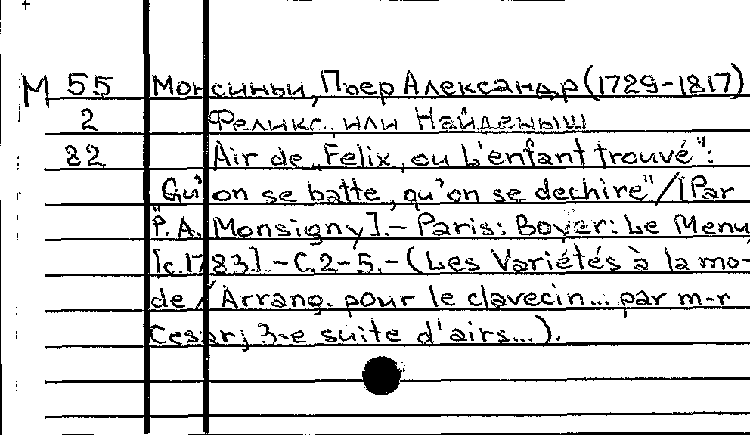 М 55 Монсиньи, Пьер Александр (1729-1817)
2 Феликс, или Найденыш
82 Air de „Felix, ou L'enfant trouvé":
„Qu'on se batte, qu'on se dechire" / [Par
P.A. Monsigny]. – Paris: Boyer: Le Menu,
[c.1783]. – C. 2-5. – (Les Variétés à la mo-
de / Arrang. pour le clavecin... par m-r
Cesar; 3-e suite d'airs...).